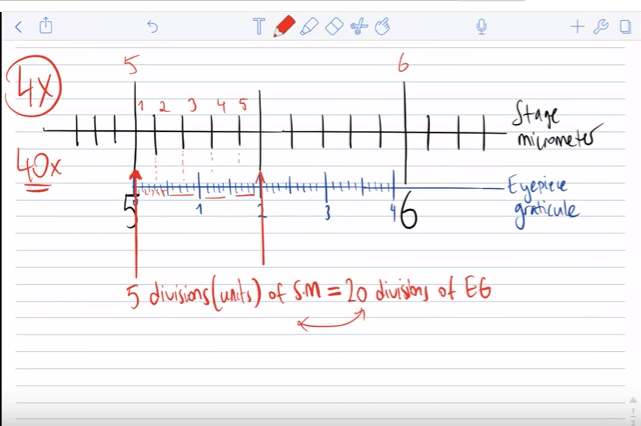 5
6
4x
1 2 3 4 5
Stage
micrometer
40x
Eyepiece
graticule
5
1
2
3
4
6
5 divisions (units) of S.M = 20 divisions of EG